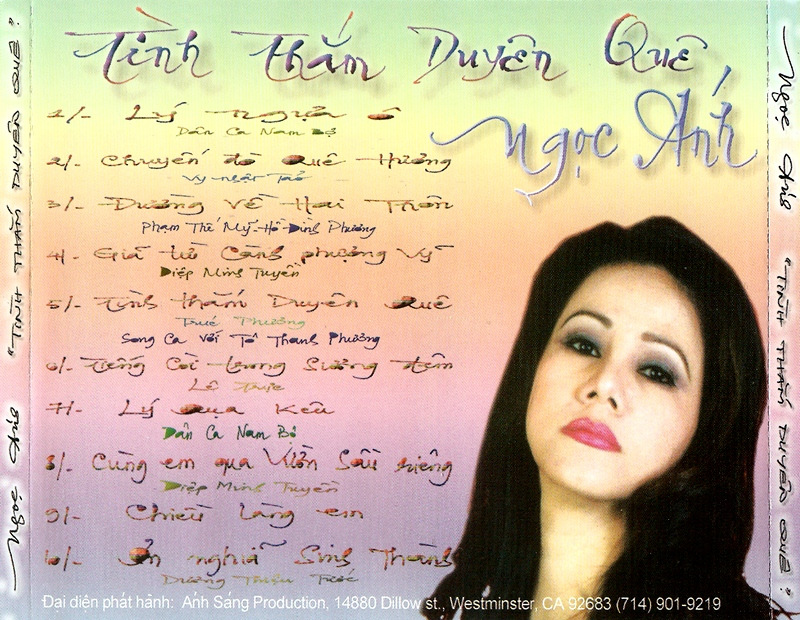 Tình Thắm Duyên Quê
Ngọc Ánh
1/- Lý Ngựa Ô
Dân Ca Nam Bộ
2/- Chuyến đò Quê Hương
Vy Nhật Tảo
3/- Đường Về Hai Thôn
Phạm Thế Mỹ - Hồ Đình Phương
4/- Giã từ Cành phượng Vỹ
Diệp Minh Tuyền
5/- Tình thắm Duyên Quê
Trúc Phương
Song Ca Với Tô Thanh Phương
6/- Tiếng Còi trong Sương đêm
Lê Trực
7/- Lý Qua Kêu
Dân Ca Nam Bộ
8/- Cùng em qua Vườn Sầu riêng
Diệp Minh Tuyền
9/- Chiều làng em
10/- Ơn nghĩa Sinh Thành
Dương Thiệu Tước
Đại diện phát hành: Ánh Sáng Production, 14880 Dillow st., Westminster, CA 92683 (714) 901-9219
Ngọc Ánh "TÌNH THẮM DUYÊN QUÊ"
Ngọc Ánh "TÌNH THẮM DUYÊN QUÊ"